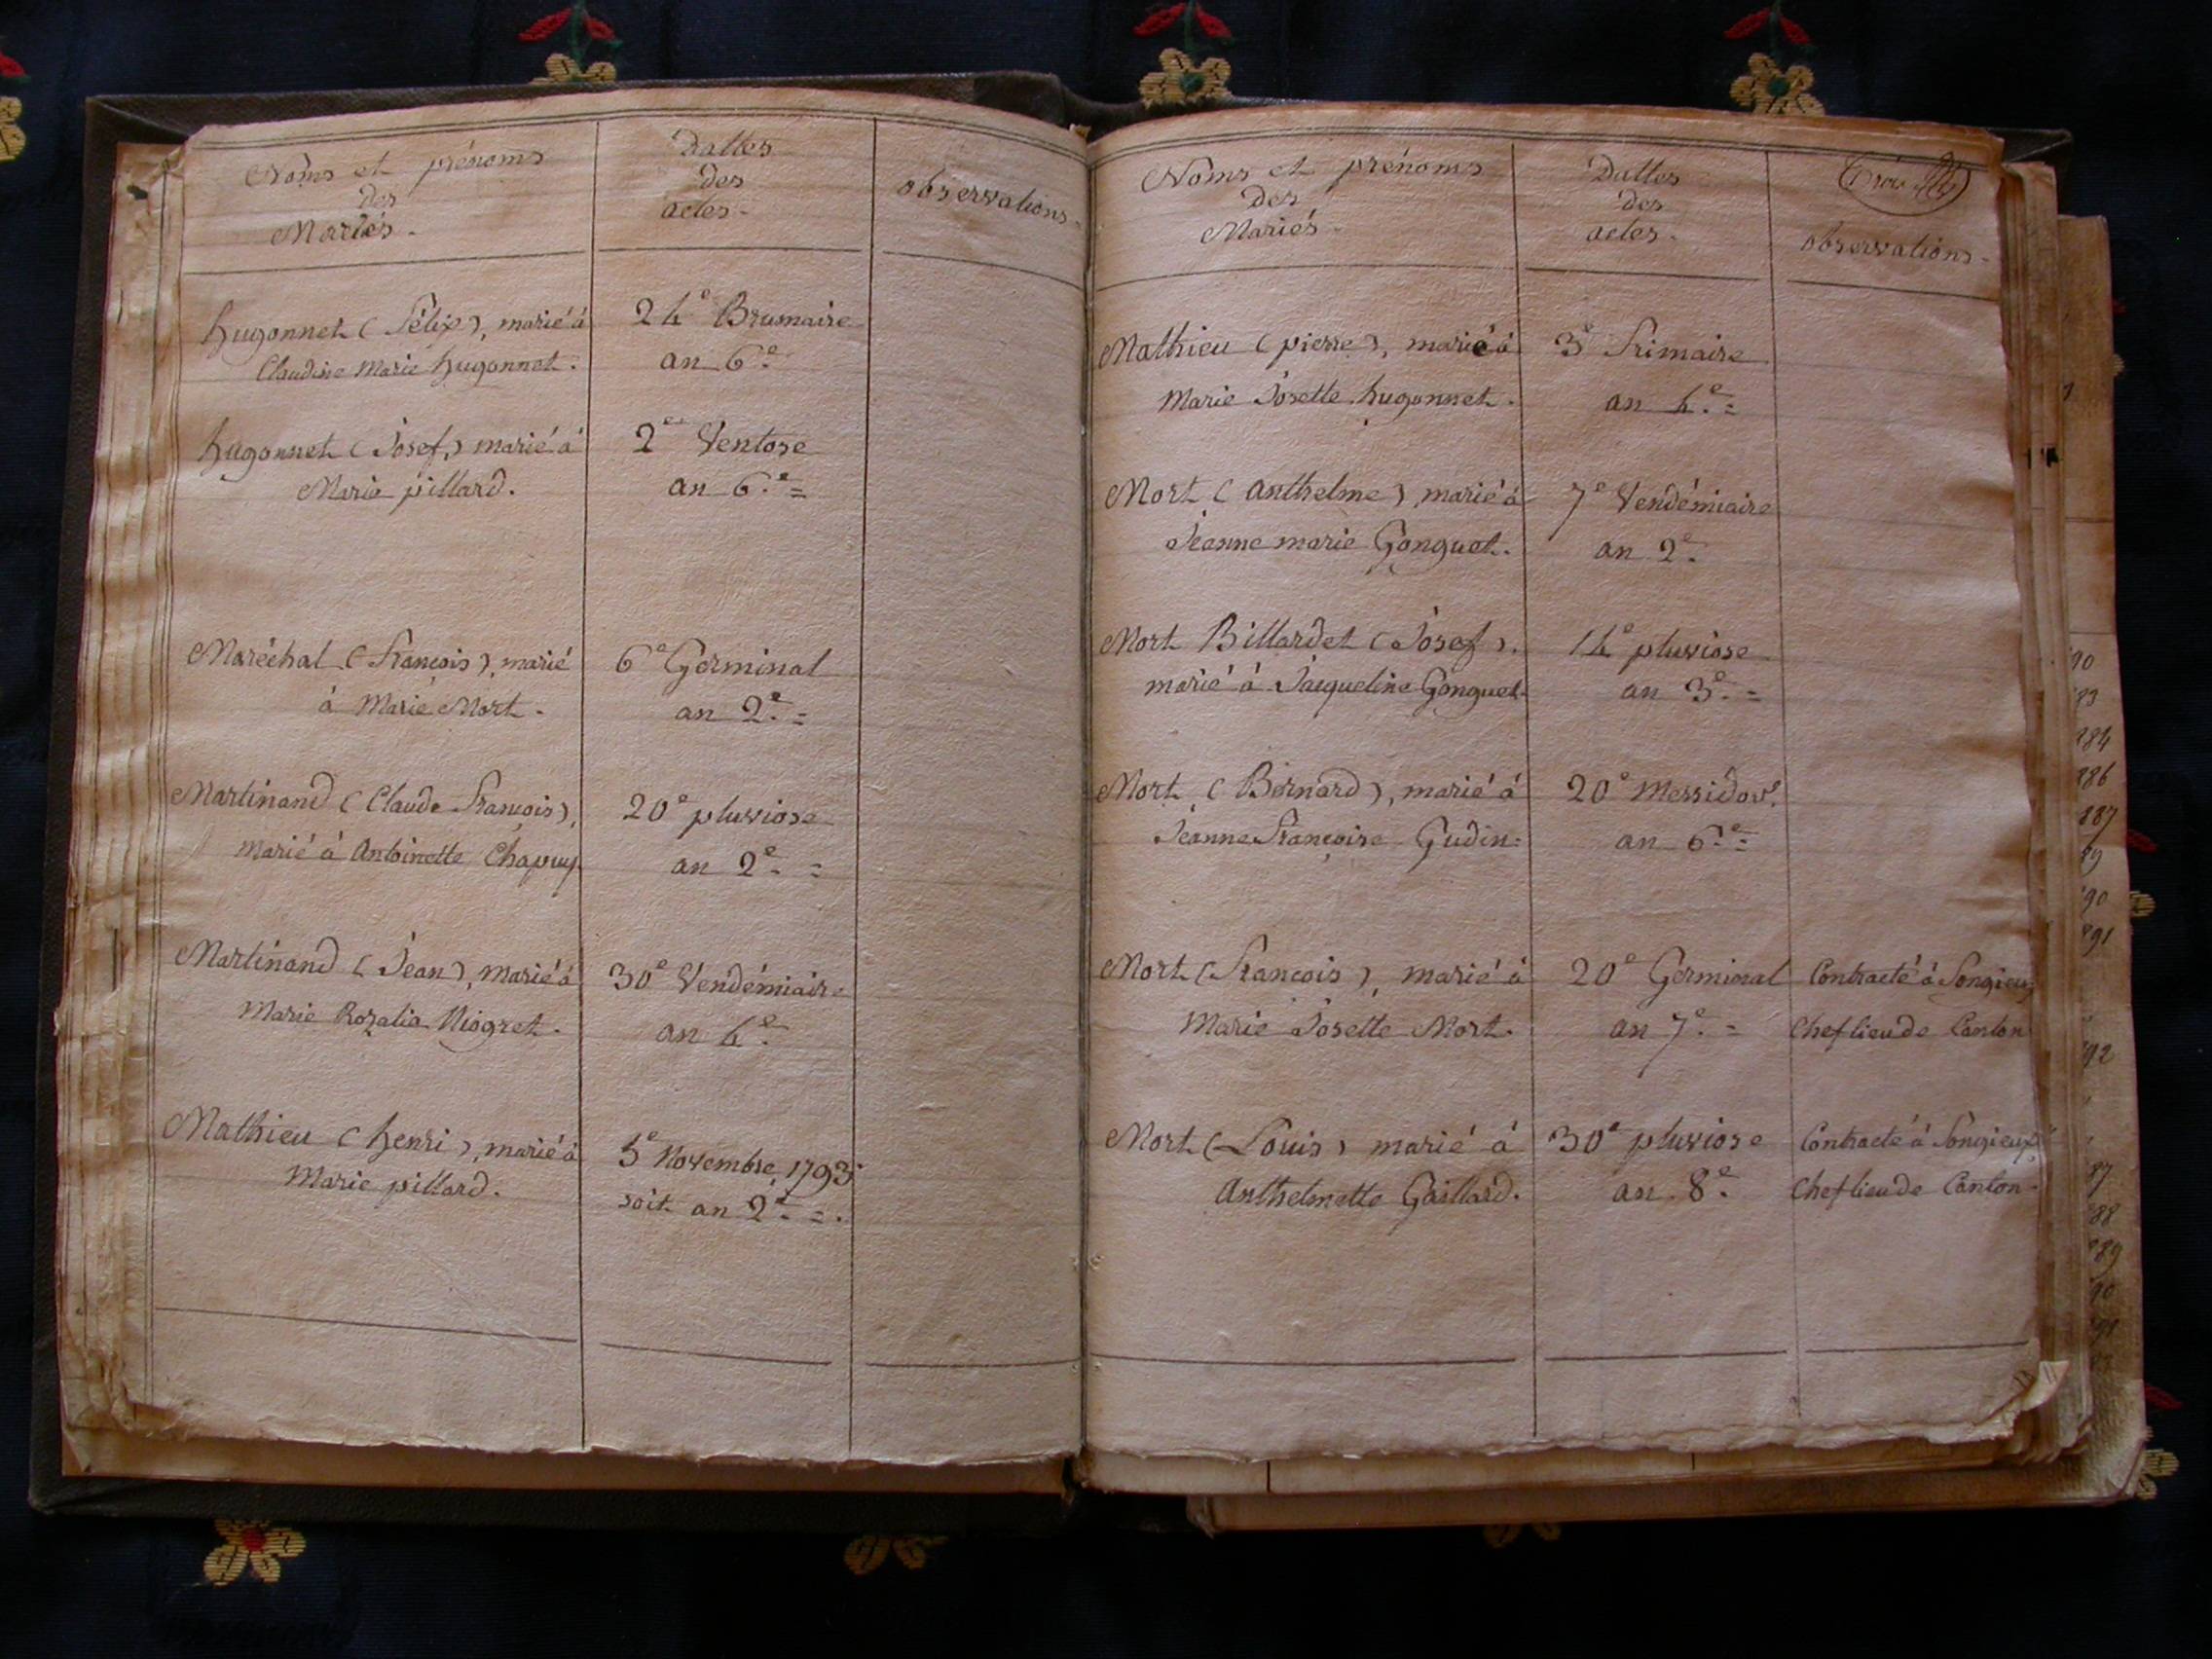 Noms et prénoms
des
Mariés.
Dattes
des
actes.
observations.
hugonnet (Félix), marié à
Claudine Marie hugonnet.
24e Brumaire
an 6e.
hugonnet (Josef,) marié à
Marie pillard.
2e Ventose
an 6.e =
Maréchal (François), marié
à Marie Mort.
6e Germinal
an 2e. =
Martinand (Claude François),
marié à Antoinette Chapuy
20e pluviose
an 2e. =
Martinand (Jean), marié à
Marie Rozalia Niogret.
30e Vendémiaire
an 4e.
Mathieu (henri), marié à
Marie pillard.
Novembre, 1793
soit an 2e. =.
Noms et prénoms
des
Mariés.
Dattes
des
actes.
observations.
Mathieu (pierre), marié à
Marie Josette hugonnet.
3e Frimaire
an 4e. =
Mort (anthelme), marié à
Jeanne marie Gonguet.
7e Vendémiaire
an 2e.
Mort Billardet (Josef).
marié à Jacqueline Gonguet.
14e pluviose
an 3e. =
Mort (Bernard), marié à
Jeanne Françoise Gudin.
20e Messidor.
an 6e. =
Mort (François), marié à
Marie Josette Mort.
20e Germinal
an 7e. =
Contracté à Songieux
Chef lieu de Canton
Mort (Louis) marié à
Anthelmette Gaillard.
30e pluviose
an 8e.
Contracté à Songieux
Chef lieu de Canton.